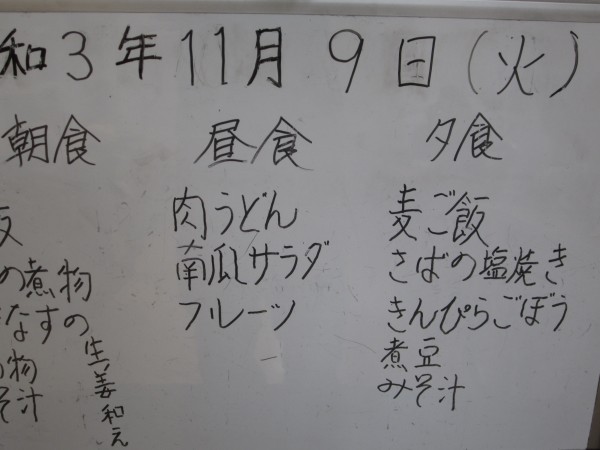 和3年11月9日(火)
朝食
の煮物
なすの
生姜和え
物
汁
昼食
肉うどん
南瓜サラダ
フルーツ
夕食
麦ご飯
さばの塩焼き
きんぴらごぼう
煮豆
みそ汁